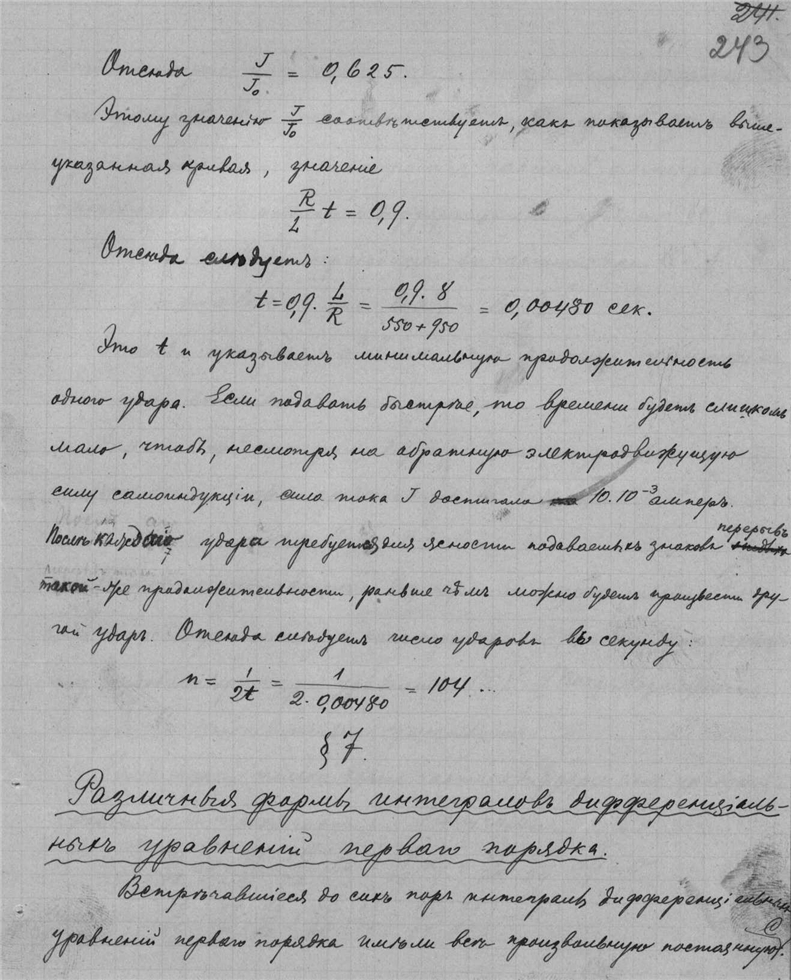 241.
243
Отсюда J/J₀ = 0,625.
Этому значенію J/J₀ соотвѣтствуетъ, какъ показываетъ выше-
указанная кривая, значеніе
R/L t = 0,9.
Отсюда слѣдуетъ:
t = 0,9 · L/R = 0,9 · 8/550+950 = 0,00480 сек.
Это t и указываетъ минимальную продолжительность
одного удара. Если подавать быстрѣе, то времени будетъ слишкомъ
мало, чтобъ, несмотря на обратную электродвижущую
силу самоиндукціи, сила тока J достигала 10.10⁻³ амперъ.
Послѣ каждаго удара требуется для ясности подаваемыхъ знаковъ перерывъ
такой-же продолжительности, раньше чѣмъ можно будетъ произвести дру-
гой ударъ. Отсюда слѣдуетъ число ударовъ въ секунду:
n = 1/2t = 1/2 · 0,00480 = 104 ...
§ 7.
Различныя формы интеграловъ дифференціаль-
ныхъ уравненій перваго порядка.
Встрѣчавшіеся до сихъ поръ интегралы дифференціальныхъ
уравненій перваго порядка имѣли всѣ произвольную постоянную C.